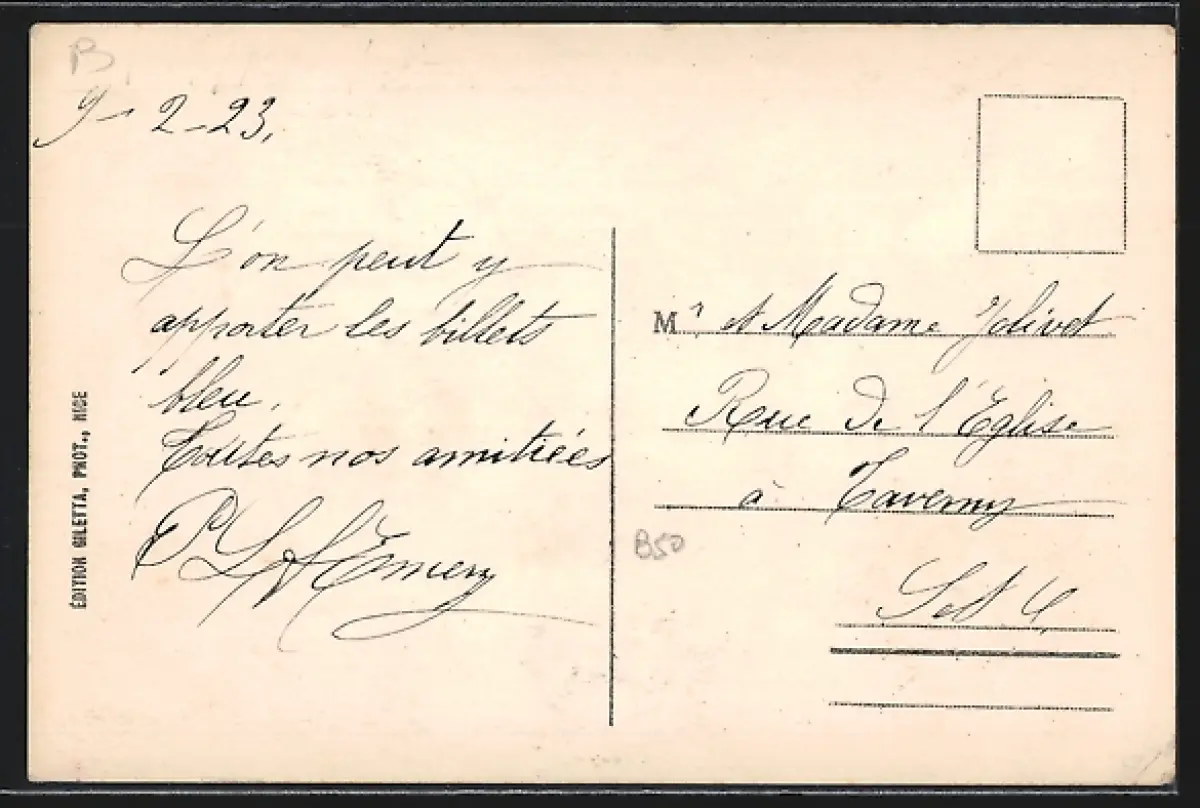 B
9-2-23.
L'on peut y
apporter les billets
"bleu.
Toutes nos amitiées
Emery
ÉDITION GILETTA, PHOT., NICE
Mr et Madame Jolivet
Rue de l'Eglise
à Taverny
B50
S et O